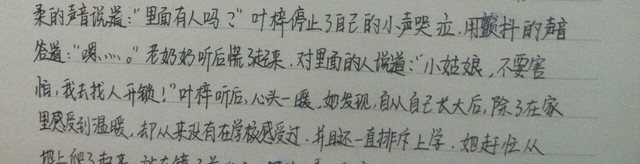 柔的声音说道:“里面有人吗?”叶梓停止了自己的小声哭泣,用颤抖的声音
答道:“嗯……。”老奶奶听后慌了起来,对里面的人说道:“小姑娘,不要害
怕,我去找人开锁!”叶梓听后,心头一暖,她发现,自从自己长大后,除了在家
里感受到温暖,却从来没有在学校感受过,并且还一直排斥上学。她赶忙从
地上爬了起来